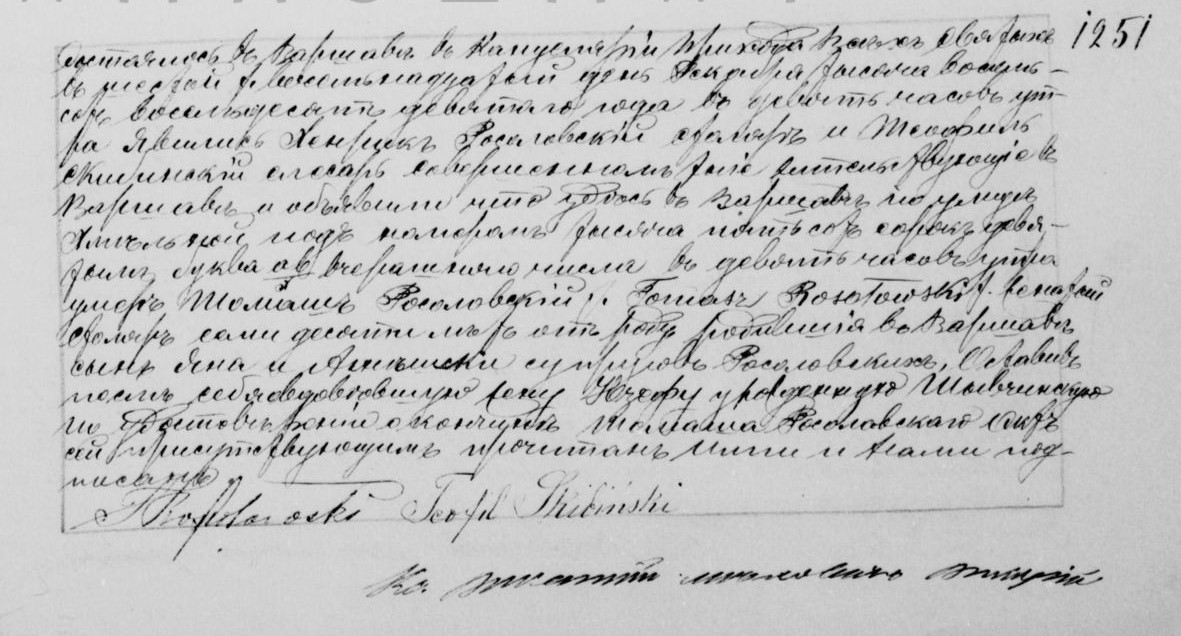 1251
Состоялось въ Варшавѣ въ Канцеляріи Прихода Всѣхъ Святыхъ
въ шестой восемьнадцатый день Декабря тысяча восемь-
сотъ восемьдесятъ девятаго года въ девять часовъ ут-
ра Явились Хенрикъ Росоловскій столяръ и Теофиль
Скибинскій слесарь совершеннолѣтніе жительствующіе въ
Варшавѣ и объявили что здѣсь въ Варшавѣ по улицѣ
Хмѣльной подъ номеромъ тысяча пятьсотъ сорокъ девя-
тымъ буква ав вчерашняго числа въ девять часовъ утра
умеръ Томашъ Росоловскій /. Tomasz Rosołowski /. женатый
столяръ семидесяти лѣтъ отъ роду родившійся въ Варшавѣ
сынъ Яна и Агнѣшки супруговъ Росоловскихъ, Оставивъ
послѣ себя овдовѣвшую жену Юзефу урожденную
по удостовѣреніи о кончинѣ Томаша Росоловскаго Актъ
сей присутствующимъ прочитанъ ими и нами под-
писанъ
Teofil Skibiński
Кс.